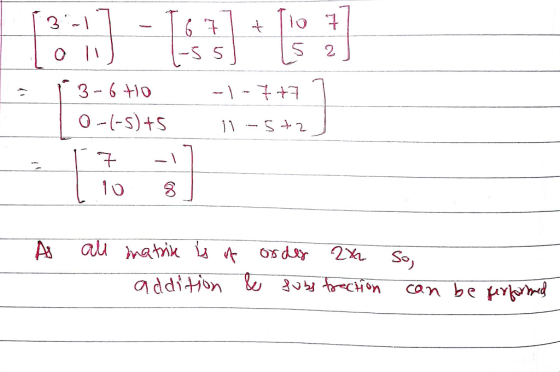 [3 -1
0 11] - [6 7
-5 5] + [10 7
5 2]
= [3-6+10 -1-7+7
0-(-5)+5 11-5+2]
= [7 -1
10 8]
As all matrix is of order 2x2 So,
addition & substraction can be performed